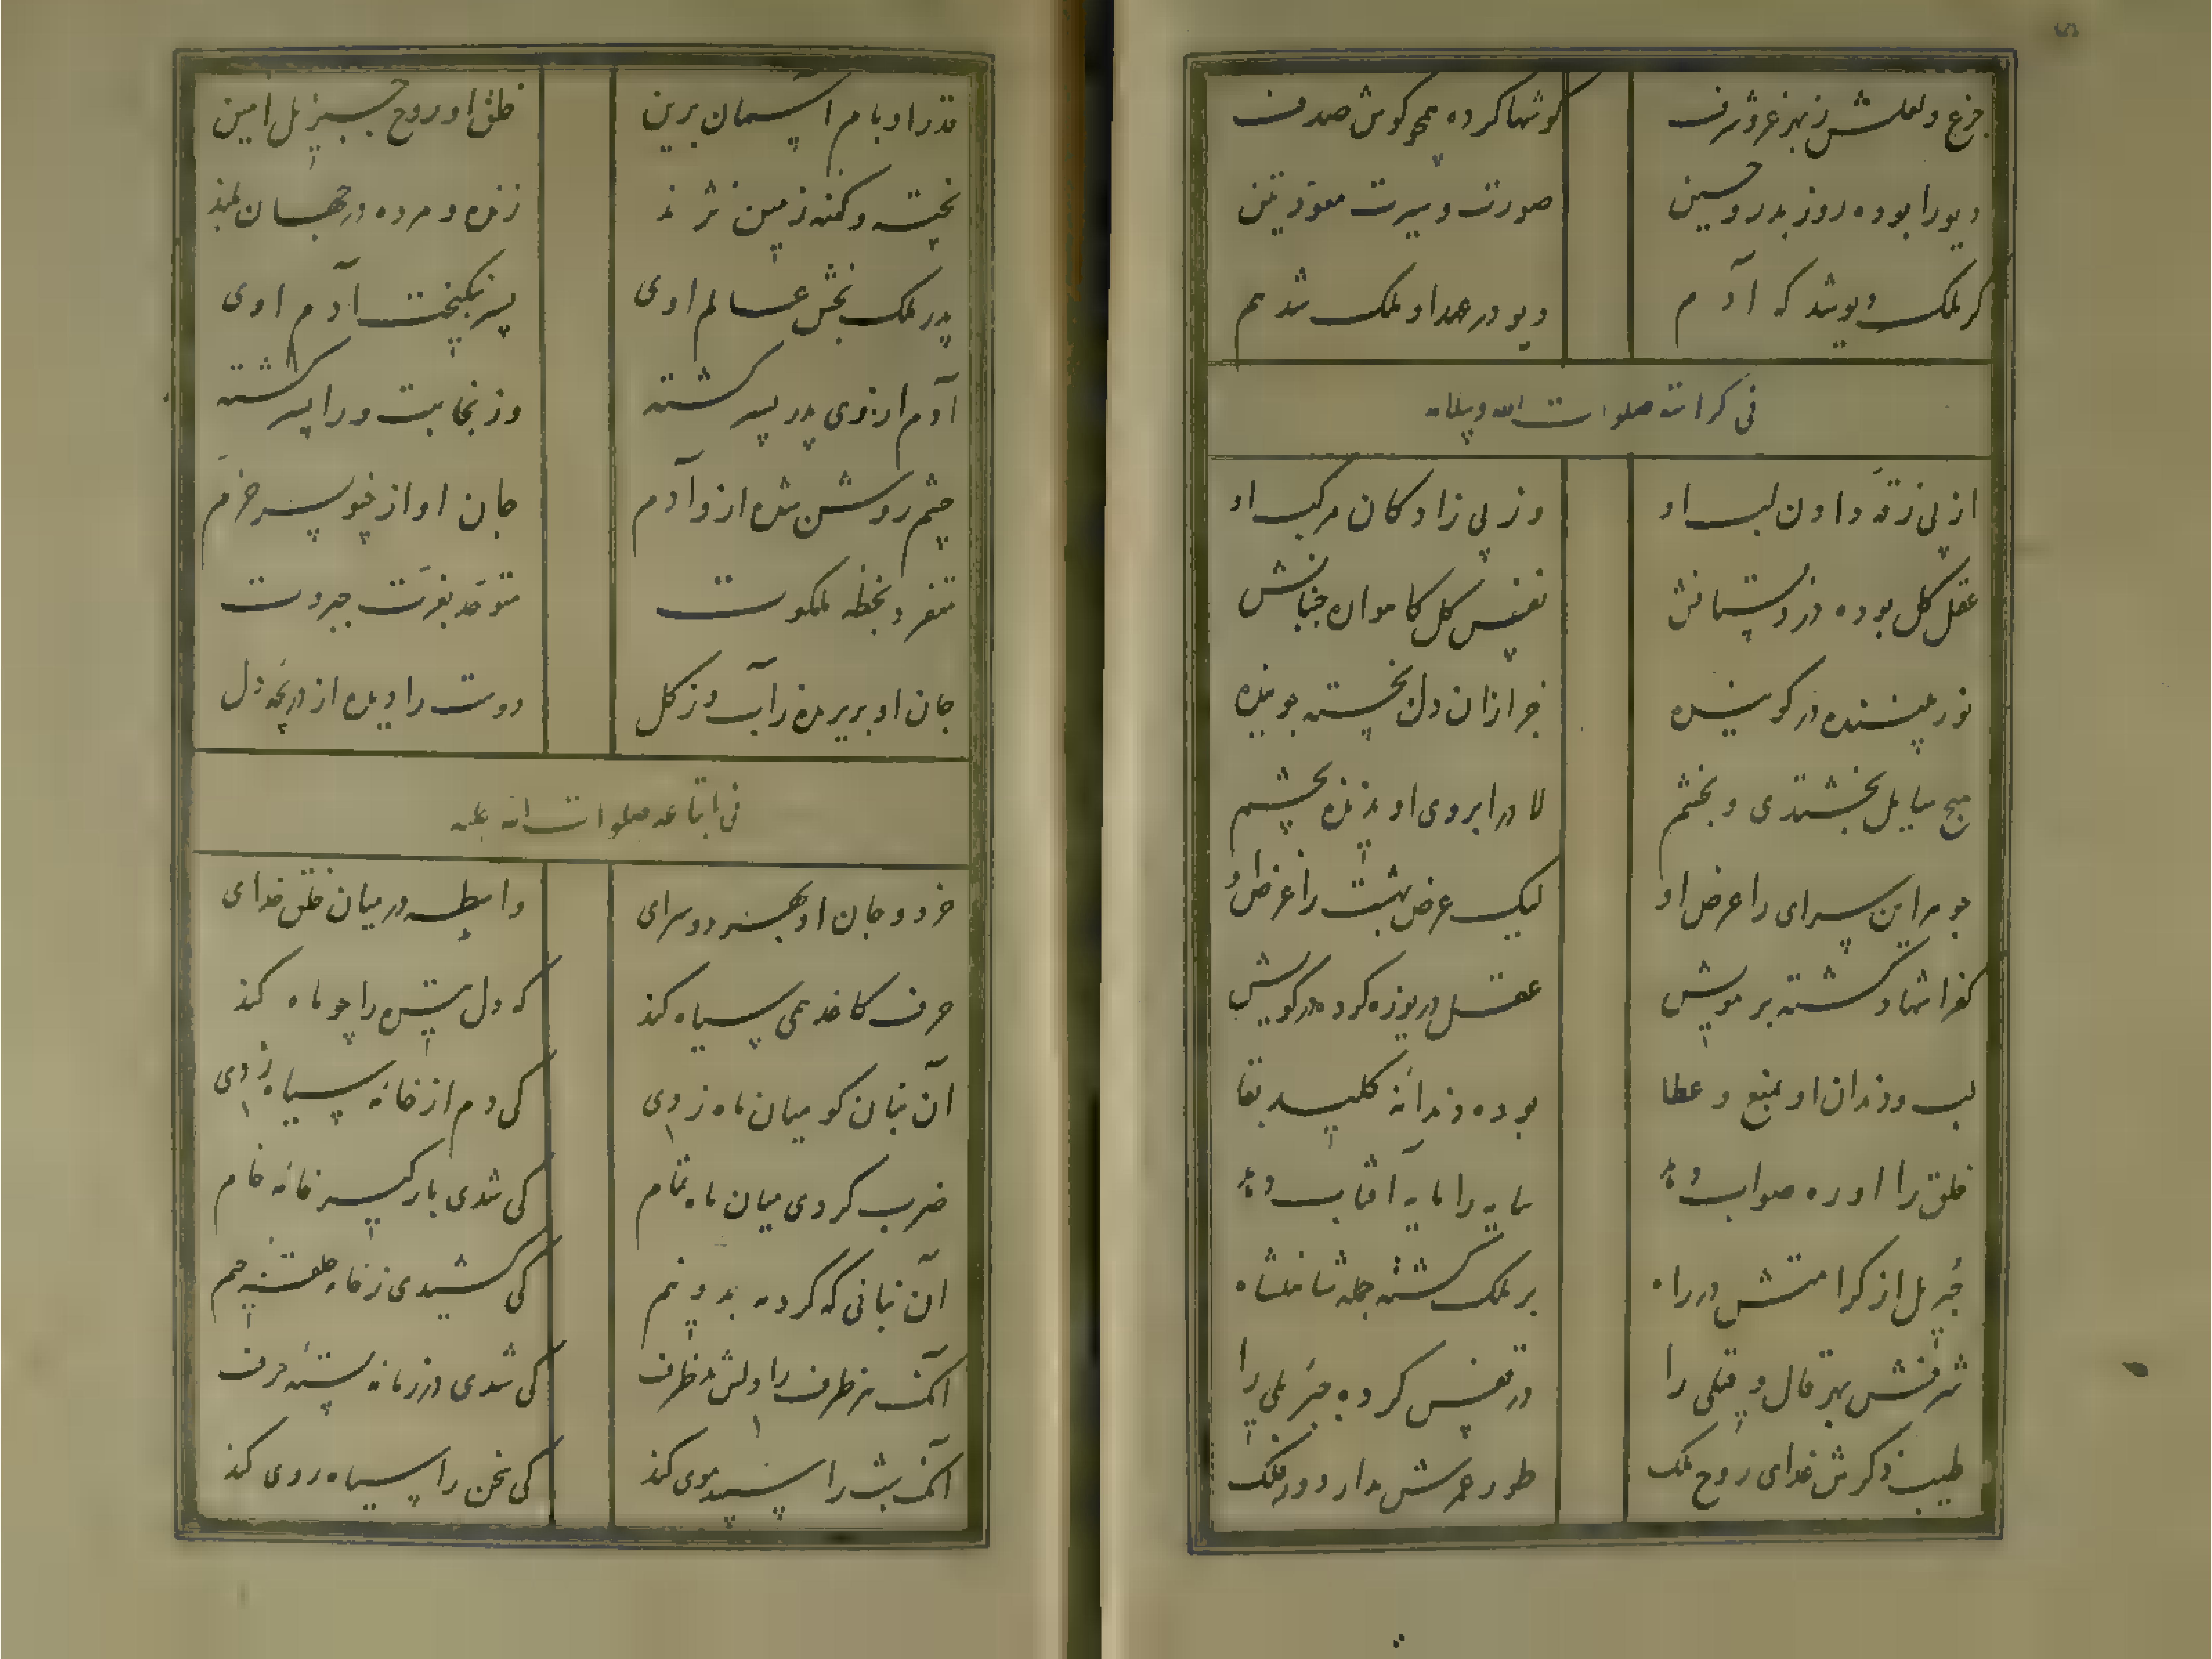 جزع و لعلش ز بهر عز و شرف گوشها کرده همچو گوش صدف
دیو را بوده روز بدر و حنین صورت و سیرت معوذتین
گر ملک دیو شد گه آدم دیو در عهد او ملک شد هم
فی کرامته صلوات الله و سلامه
از پی زقه دادن لب او وز پی زادگان مرکب او
عقل کل بوده در دبستانش نفس کل گاهواره جنبانش
نور بیننده در کوشنده جز از آن دل نجسته جوینده
هیچ سایل بخشندی و بخشم لا در ابروی او ندیده بچشم
جوهر این سرای را عرض او لیک عرض بهشت را غرض او
کفر ایشا گشته بر مویش عقل دریوزه کرده در کویش
لب و دندان او بمنع و عطا بوده دندانه کلید بقا
خلق را او ره صواب دهد سایه را مایه آفتاب دهد
جبریل از کرامتش در راه بر ملک گشته جمله شاهنشاه
شرفش بهر قال و قیلی را در قفس کرده جبرئیلی را
طیب ذکرش غذای روح ملک طور مهرش مدار دور فلک
قدر او بام آسمان برین خلق او روح جبرئیل امین
پخته و کفته زمین نژند زنده و مرده در جهان بلند
پدر ملک بخش عالم اوی پسر نیکبخت آدم اوی
آدم از وی پدر پسر گشته وز نجابت ورا پسر گشته
چشم روشن شده ازو آدم جان او از چنو پسر خرم
متفرد بخطه ملکوت متوحد بعزت جبروت
جان او بر پریده زآب و ز گل دوست را دیده از دریچه دل
فی اتباعه صلوات الله علیه
خرد و جان او بهر دو سرای واسطه در میان خلق خدای
حرف کاغذ همی سیاه کند که دل تیره را چو ماه کند
آن بنان کو میان ماه زدی کی دم از خانه سیاه زدی
ضرب کردی میان ماه تمام کی شدی یار گیر خانه خام
آن بنانی که کرد مه بدو نیم کی کشیدی ز خامه حلقه جیم
آنک هر طرف را دلش ظرف کی شدی در زمانه بسته حرف
آنک شب را سپید موی کند کی سخن را سیاه روی کند